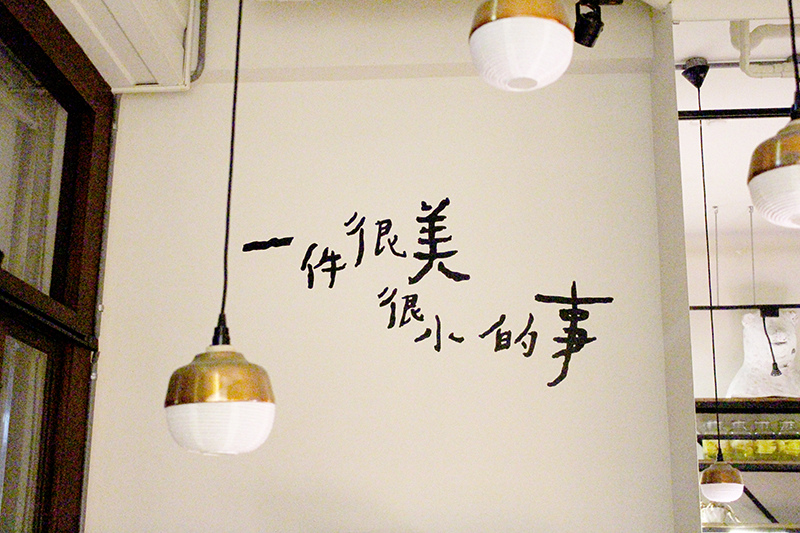 一件很美
很小的事